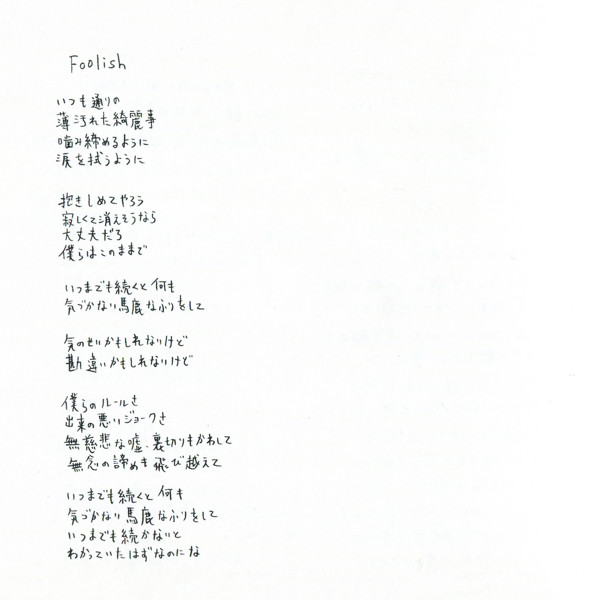 Foolish
いつも通りの
薄汚れた綺麗事
噛み締めるように
涙を拭うように
抱きしめてやろう
寂しくて消えそうなら
大丈夫だろ
僕らはこのままで
いつまでも続くと何も
気づかない馬鹿なふりをして
気のせいかもしれないけど
勘違いかもしれないけど
僕らのルールさ
出来の悪いジョークさ
無慈悲な嘘、裏切りもかわして
無念の諦めも飛び越えて
いつまでも続くと何も
気づかない馬鹿なふりをして
いつまでも続かないと
わかっていたはずなのにな